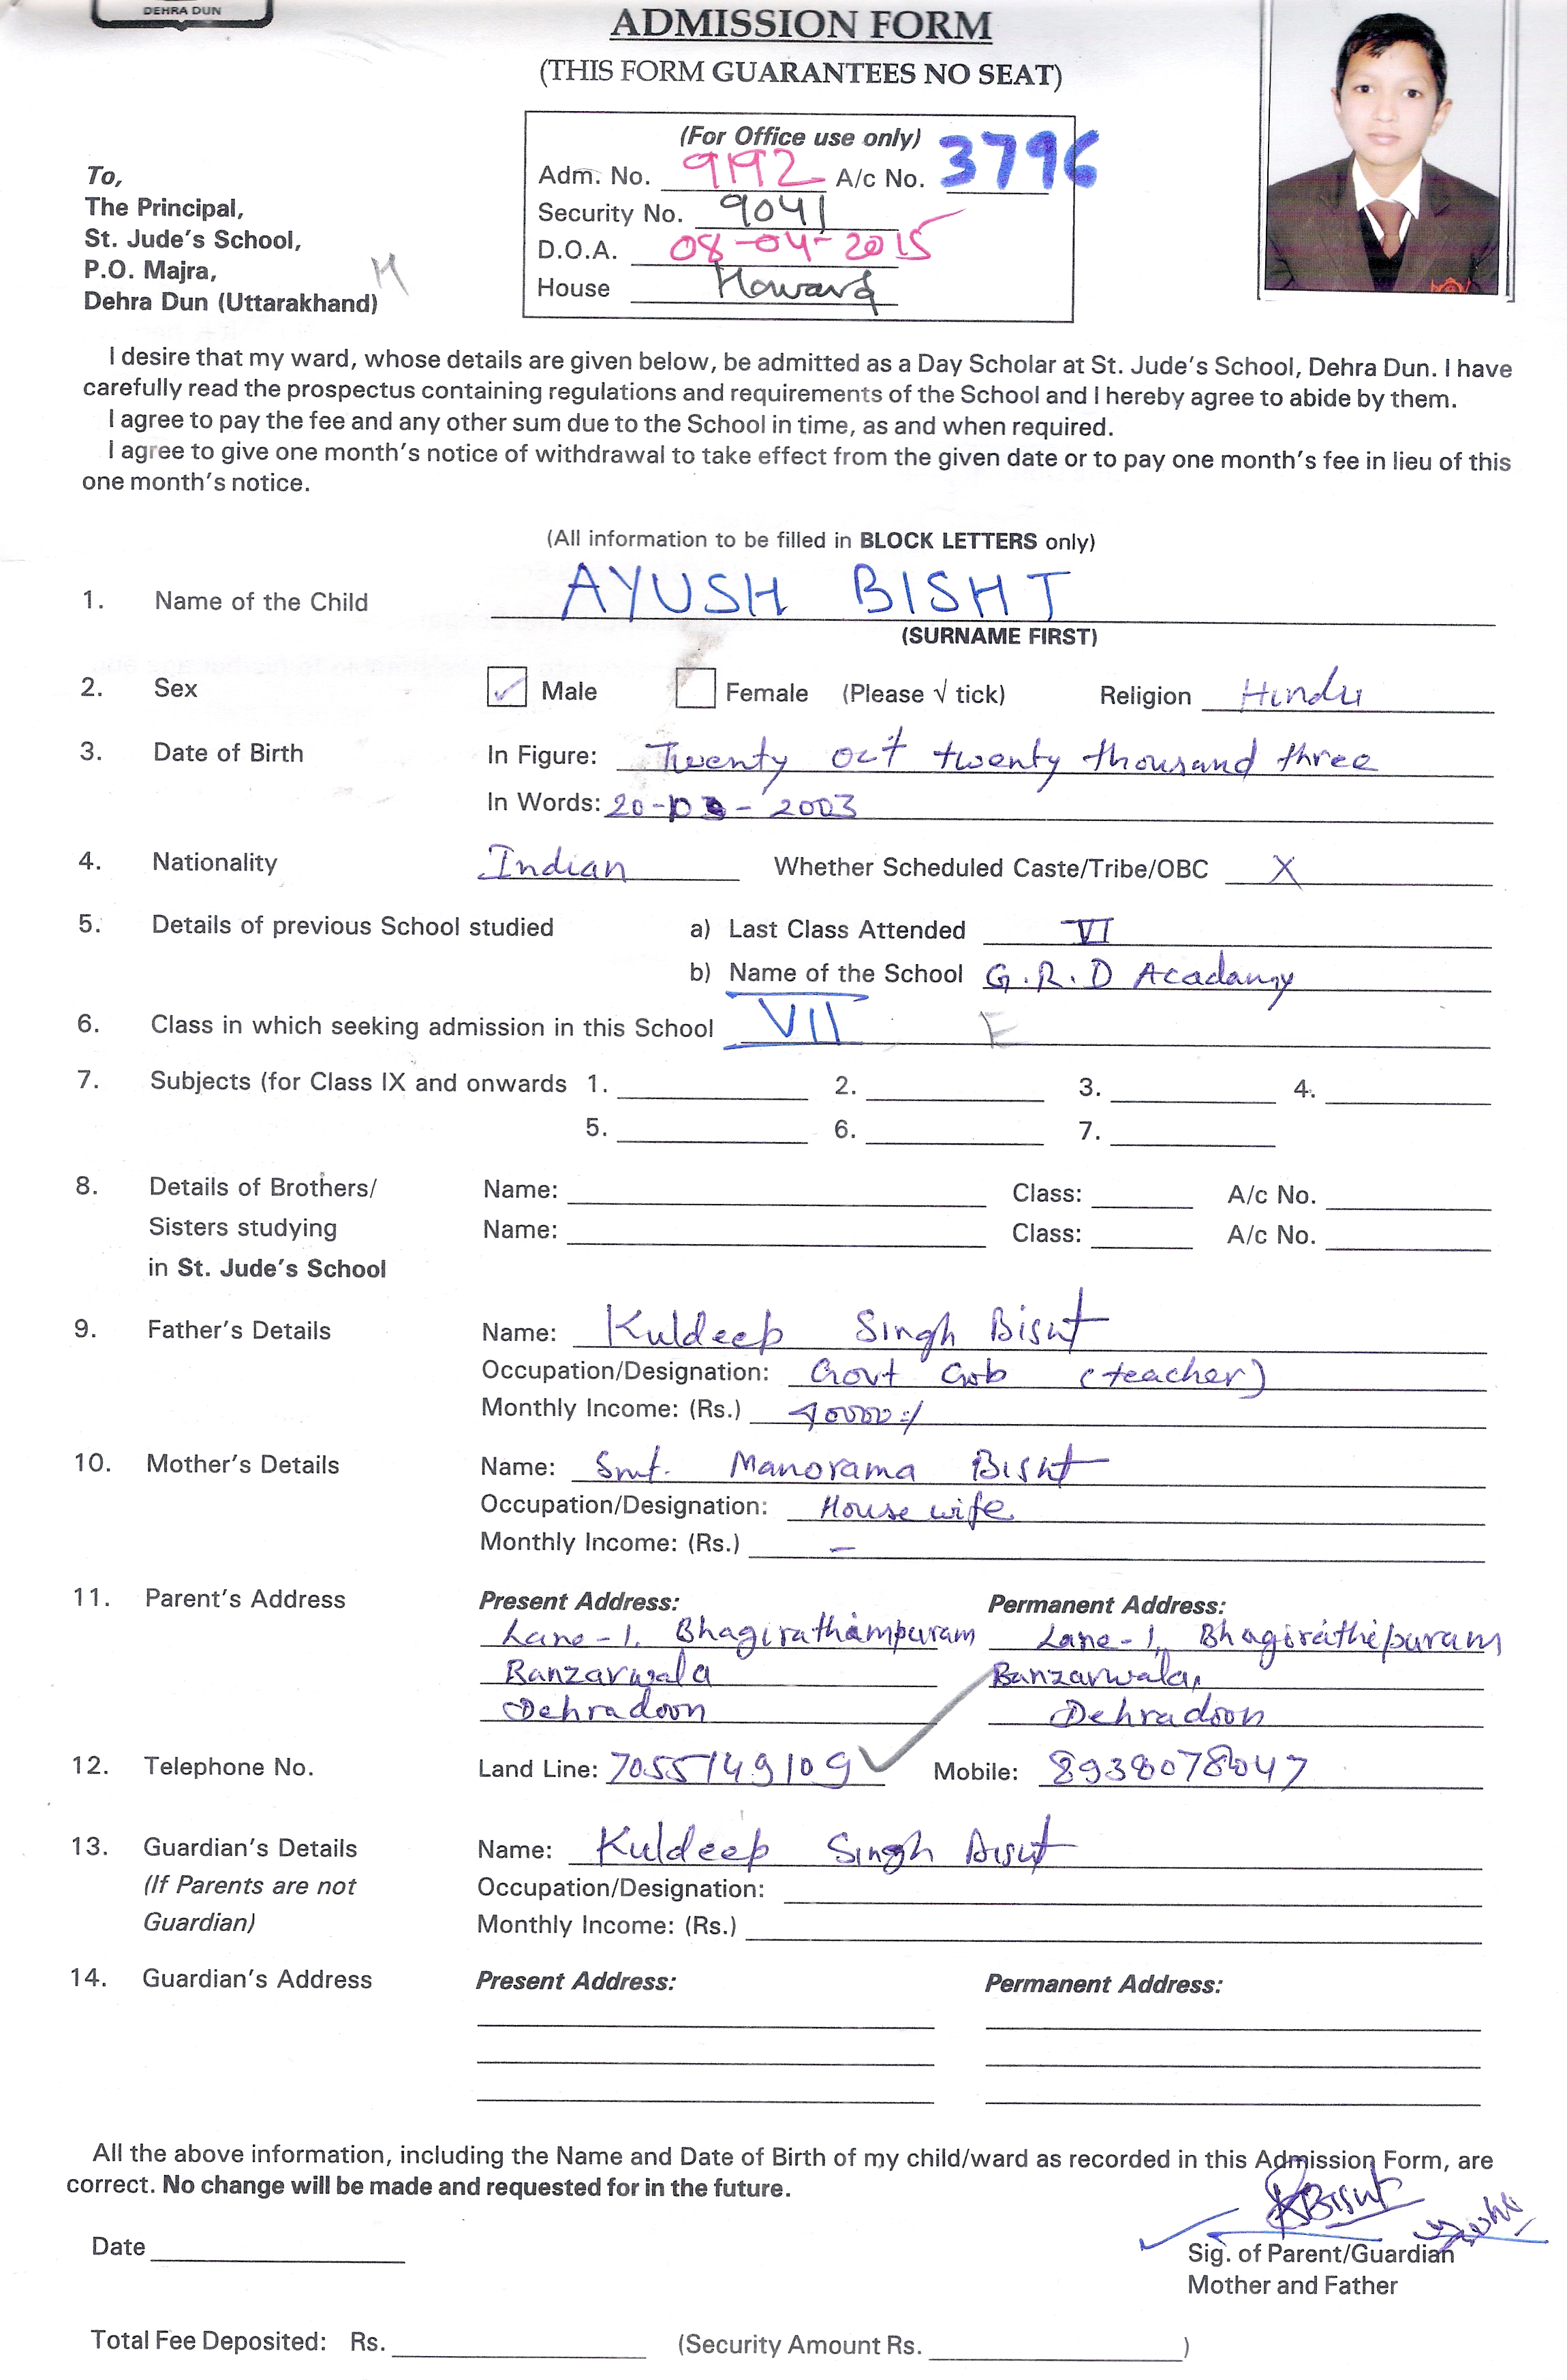 DEHRA DUN
ADMISSION FORM
(THIS FORM GUARANTEES NO SEAT)
(For Office use only)
Adm. No. 9192 A/c No. 3796
Security No. 9041
D.O.A. 08-04-2015
House Howard
To,
The Principal,
St. Jude's School,
P.O. Majra,
Dehra Dun (Uttarakhand)
H
I desire that my ward, whose details are given below, be admitted as a Day Scholar at St. Jude's School, Dehra Dun. I have
carefully read the prospectus containing regulations and requirements of the School and I hereby agree to abide by them.
I agree to pay the fee and any other sum due to the School in time, as and when required.
I agree to give one month's notice of withdrawal to take effect from the given date or to pay one month's fee in lieu of this
one month's notice.
(All information to be filled in BLOCK LETTERS only)
1. Name of the Child AYUSH BISHT
(SURNAME FIRST)
2. Sex ✓ Male Female (Please √ tick) Religion Hindu
3. Date of Birth In Figure: Twenty oct twenty thousand three
In Words: 20- - 2003
4. Nationality Indian Whether Scheduled Caste/Tribe/OBC X
5. Details of previous School studied a) Last Class Attended VI
b) Name of the School G.R.D Acadamy
6. Class in which seeking admission in this School VII E
7. Subjects (for Class IX and onwards 1. 2. 3. 4.
5. 6. 7.
8. Details of Brothers/ Name: Class: A/c No.
Sisters studying Name: Class: A/c No.
in St. Jude's School
9. Father's Details Name: Kuldeep Singh Bisht
Occupation/Designation: Govt (teacher)
Monthly Income: (Rs.)
10. Mother's Details Name: Smt. Manorama Bisht
Occupation/Designation: House wife
Monthly Income: (Rs.) –
11. Parent's Address Present Address: Permanent Address:
Lane-1, Bhagirathampuram Lane-1, Bhagirathipuram
Banzarwala Banzarwala,
Dehradoon Dehradoon
12. Telephone No. Land Line: 7055149109 Mobile: 8938078047
13. Guardian's Details Name: Kuldeep Singh Bisht
(If Parents are not Occupation/Designation:
Guardian) Monthly Income: (Rs.)
14. Guardian's Address Present Address: Permanent Address:
All the above information, including the Name and Date of Birth of my child/ward as recorded in this Admission Form, are
correct. No change will be made and requested for in the future.
KBisht
Date Sig. of Parent/Guardian
Mother and Father
Total Fee Deposited: Rs. (Security Amount Rs. )